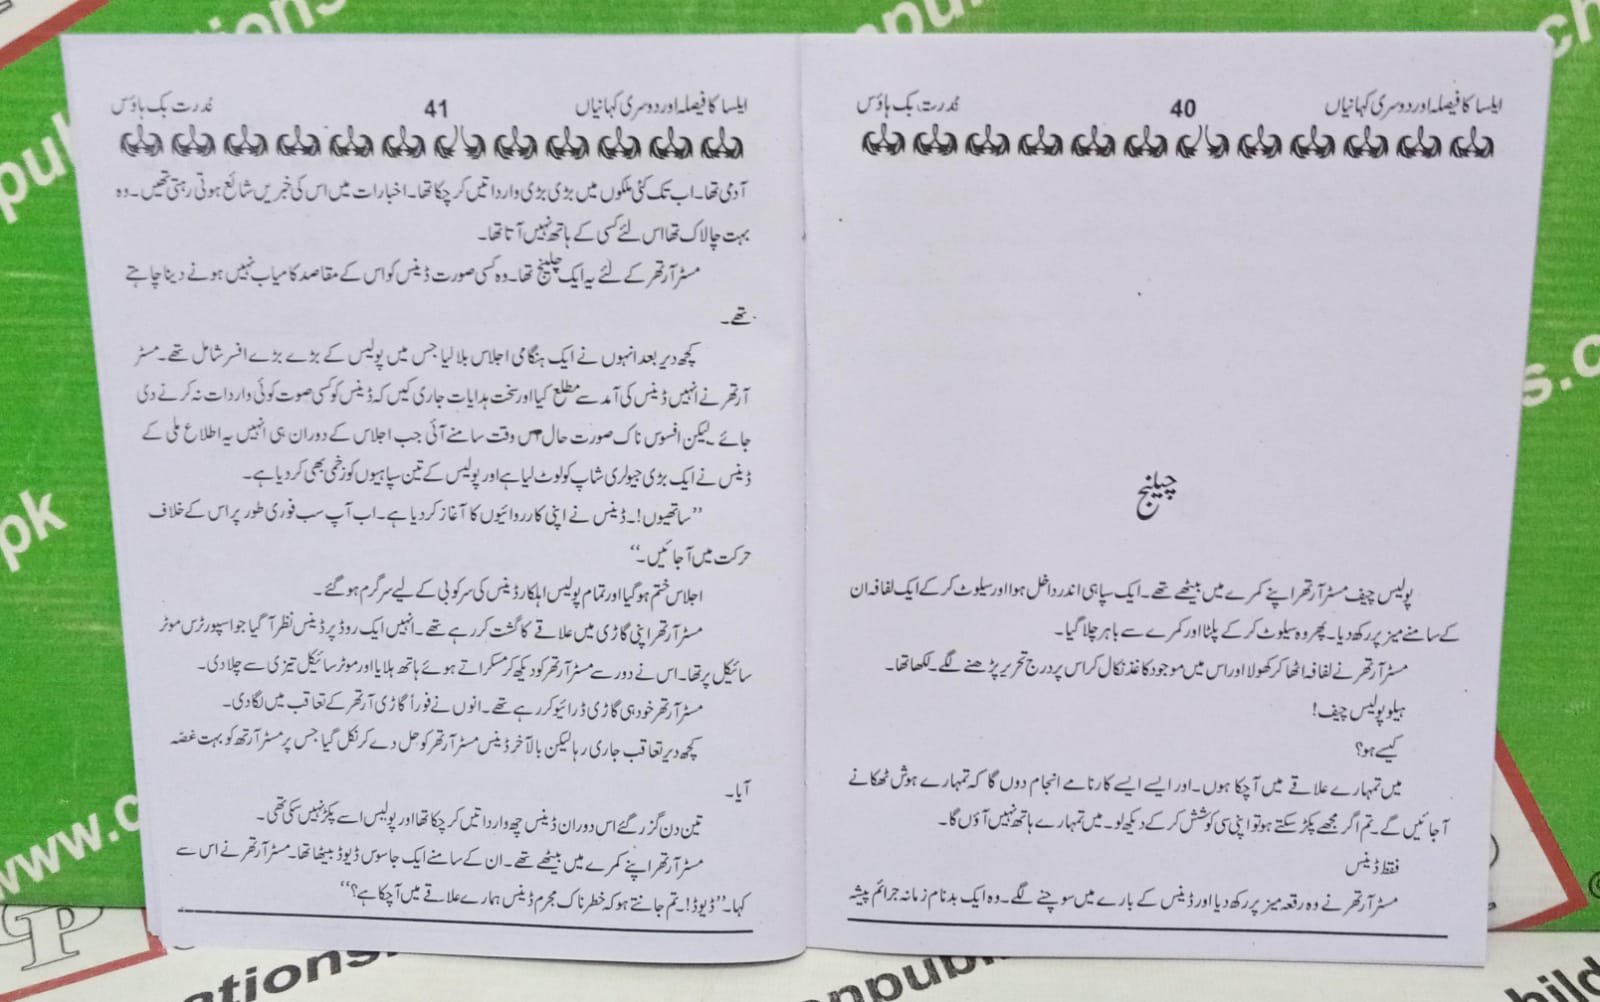 ایلسا کا فیصلہ اور دوسری کہانیاں 40 قدرت بک ہاؤس
چیلنج
پولیس چیف مسٹر آرتھر اپنے کمرے میں بیٹھے تھے۔ ایک سپاہی اندر داخل ہوا اور سیلوٹ کر کے ایک لفافہ ان
کے سامنے میز پر رکھ دیا۔ پھر وہ سیلوٹ کر کے پلٹا اور کمرے سے باہر چلا گیا۔
مسٹر آرتھر نے لفافہ اٹھا کر کھولا اور اس میں موجود کاغذ نکال کر اس پر درج تحریر پڑھنے لگے۔ لکھا تھا۔
ہیلو پولیس چیف!
کیسے ہو؟
میں تمہارے علاقے میں آچکا ہوں۔ اور ایسے ایسے کارنامے انجام دوں گا کہ تمہارے ہوش ٹھکانے
آجائیں گے۔ تم اگر مجھے پکڑ سکتے ہو تو اپنی سی کوشش کر کے دیکھ لو۔ میں تمہارے ہاتھ نہیں آؤں گا۔
فقط ڈینس
مسٹر آرتھر نے وہ رقعہ میز پر رکھ دیا اور ڈینس کے بارے میں سوچنے لگے۔ وہ ایک بدنام زمانہ جرائم پیشہ
ایلسا کا فیصلہ اور دوسری کہانیاں 41 قدرت بک ہاؤس
آدمی تھا۔ اب تک کئی ملکوں میں بڑی بڑی وارداتیں کر چکا تھا۔ اخبارات میں اس کی خبریں شائع ہوتی رہتی تھیں۔ وہ
بہت چالاک تھا اس لئے کسی کے ہاتھ نہیں آتا تھا۔
مسٹر آرتھر کے لئے یہ ایک چیلنج تھا۔ وہ کسی صورت ڈینس کو اس کے مقاصد کامیاب نہیں ہونے دینا چاہتے
تھے۔
کچھ دیر بعد انہوں نے ایک ہنگامی اجلاس بلا لیا جس میں پولیس کے بڑے بڑے افسر شامل تھے۔ مسٹر
آرتھر نے انہیں ڈینس کی آمد سے مطلع کیا اور سخت ہدایات جاری کیں کہ ڈینس کو کسی صوت کوئی واردات نہ کرنے دی
جائے۔ لیکن افسوس ناک صورت حال اس وقت سامنے آئی جب اجلاس کے دوران ہی انہیں یہ اطلاع ملی کے
ڈینس نے ایک بڑی جیولری شاپ کو لوٹ لیا ہے اور پولیس کے تین سپاہیوں کو زخمی بھی کر دیا ہے۔
”ساتھیوں!۔ ڈینس نے اپنی کارروائیوں کا آغاز کر دیا ہے۔ اب آپ سب فوری طور پر اس کے خلاف
حرکت میں آجائیں۔“
اجلاس ختم ہو گیا اور تمام پولیس اہلکار ڈینس کی سرکوبی کے لیے سرگرم ہو گئے۔
مسٹر آرتھر اپنی گاڑی میں علاقے کا گشت کر رہے تھے۔ انہیں ایک روڈ پر ڈینس نظر آ گیا جو اسپورٹرس موٹر
سائیکل پر تھا۔ اس نے دور سے مسٹر آرتھر کو دیکھ کر مسکراتے ہوئے ہاتھ ہلایا اور موٹر سائیکل تیزی سے چلا دی۔
مسٹر آرتھر خود ہی گاڑی ڈرائیو کر رہے تھے۔ انوں نے فوراً گاڑی آرتھر کے تعاقب میں لگا دی۔
کچھ دیر تعاقب جاری رہا لیکن بالآخر ڈینس مسٹر آرتھر کو جل دے کر نکل گیا جس پر مسٹر آرتھ کو بہت غصہ
آیا۔
تین دن گزر گئے اس دوران ڈینس چھ وارداتیں کر چکا تھا اور پولیس اسے پکڑ نہیں سکی تھی۔
مسٹر آرتھر اپنے کمرے میں بیٹھے تھے۔ ان کے سامنے ایک جاسوس ڈیوڈ بیٹھا تھا۔ مسٹر آرتھر نے اس سے
کہا۔ ”ڈیوڈ!۔ تم جانتے ہو کہ خطرناک مجرم ڈینس ہمارے علاقے میں آ چکا ہے؟“